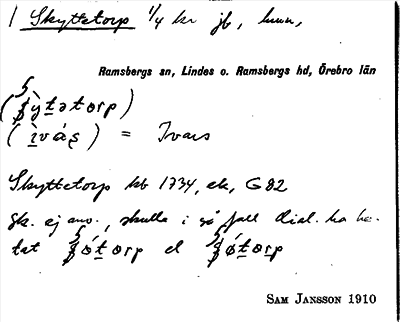 1 Skyttetorp 1/4 kr jb, hmn,
Ramsbergs sn, Lindes o. Ramsbergs hd, Örebro län
(ʃỳtətorp)
(ìvás) = Ivars
Skyttetorp kb 1734, ek, G82
Gk. ej anv., skulle i så fall dial. ha he-
tat el
SAM JANSSON 1910